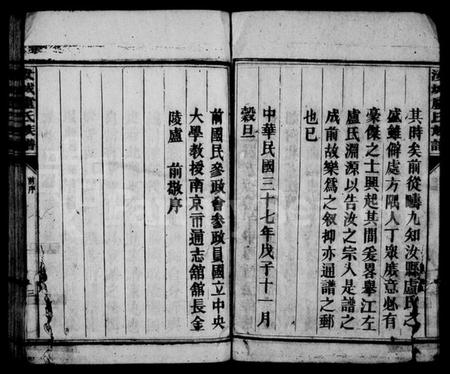 其時矣前從疇九知汝縣盧氏之
盛雖僻處方隅人丁眾庶意必有
豪傑之士興起其間爰畧舉江左
盧氏淵源以告汝之宗人是譜之
成前故樂為之敘抑亦通譜之郵
也已
中華民國三十七年戊子十一月
穀旦
前國民參政會參政員國立中央
大學教授南京市通志舘舘長金
陵盧 前敬序
汝城盧氏族譜
前序